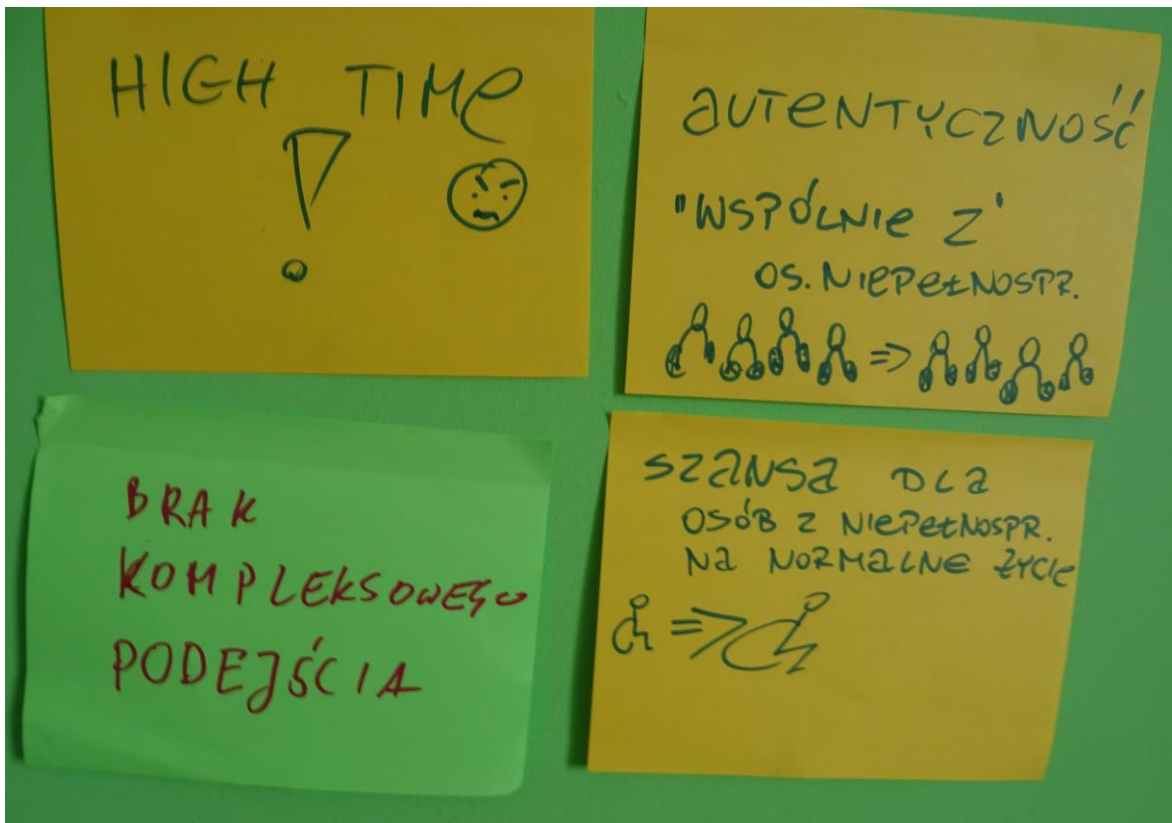 HIGH TIME
!
AUTENTYCZNOŚĆ
"WSPÓLNIE Z"
OS. NIEPEŁNOSPR.
=>
BRAK
KOMPLEKSOWEGO
PODEJŚCIA
SZANSA DLA
OSÓB Z NIEPEŁNOSPR.
NA NORMALNE ŻYCIE
=>